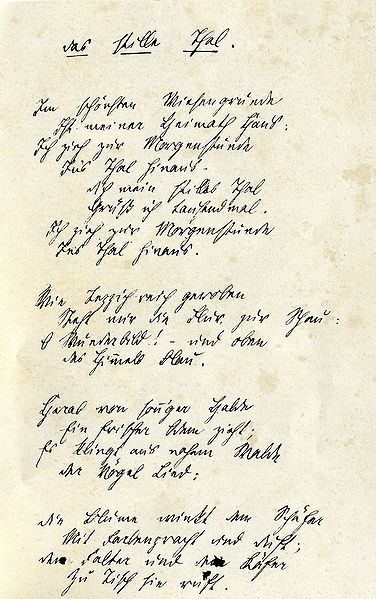 das stille Thal.
Im schönsten Wiesengrunde
Ist meiner Heimath Haus:
Ich zieh zur Morgenstunde
Ins Thal hinaus.
Dich mein stilles Thal
Grüß ich tausendmal.
Ich zieh zur Morgenstunde
Ins Thal hinaus.
Wie Teppich reich gewoben
Steht mir die Flur zur Schau:
O Wunderbild! – und oben
des Himmels Blau.
Herab von sonn'ger Halde
Ein frischer Odem zieht;
Es klingt aus nahem Walde
der Vögel Lied;
die Blume winkt dem Schäfer
Mit Farbenpracht und Duft;
den Falter und den Käfer
Zu Tisch sie ruft.